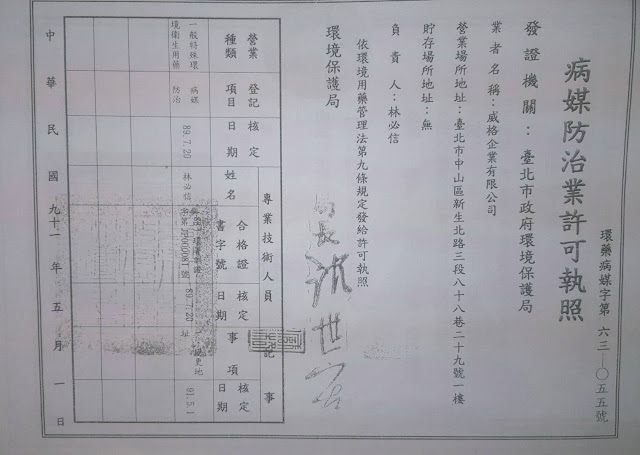 病媒防治業許可執照
環藥病媒字第 六三-○五五號
發證機關：臺北市政府環境保護局
業者名稱：威格企業有限公司
營業場所地址：臺北市中山區新生北路三段八十八巷二十九號一樓
貯存場所地址：無
負責人：林必信
依環境用藥管理法第九條規定發給許可執照
環境保護局
局長 沈世宏
營業種類
登記項目
核定日期
專業技術人員
姓名
合格證書字號
核定日期
記事
事項
核定日期
一般特殊環境衛生用藥
病媒防治
89.7.20
林必信
89.7.20
變更地址
91.5.1
中華民國九十一年五月一日